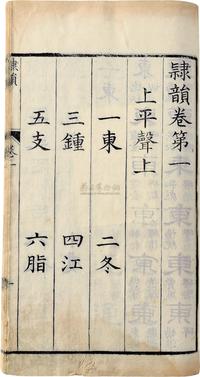 隸韻卷第一
上平聲上
一東 二冬
三鍾 四江
五支 六脂
隸韻
卷一